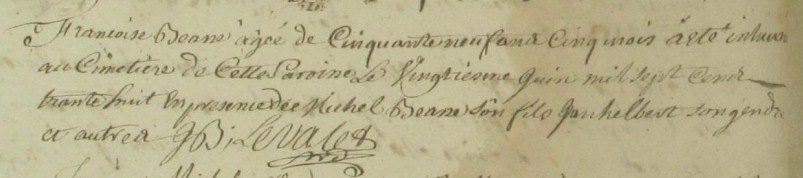 Francoise Beans agéé de Cinquante neuf ans Cinq mois a eté inhum
au Cimetiere de Cette Paroisse Le Vingtiesme Juin mil sept Cent
trante huit En presence de Michel Beans son fils Jan helbert son gendre
et autres J B Levalet